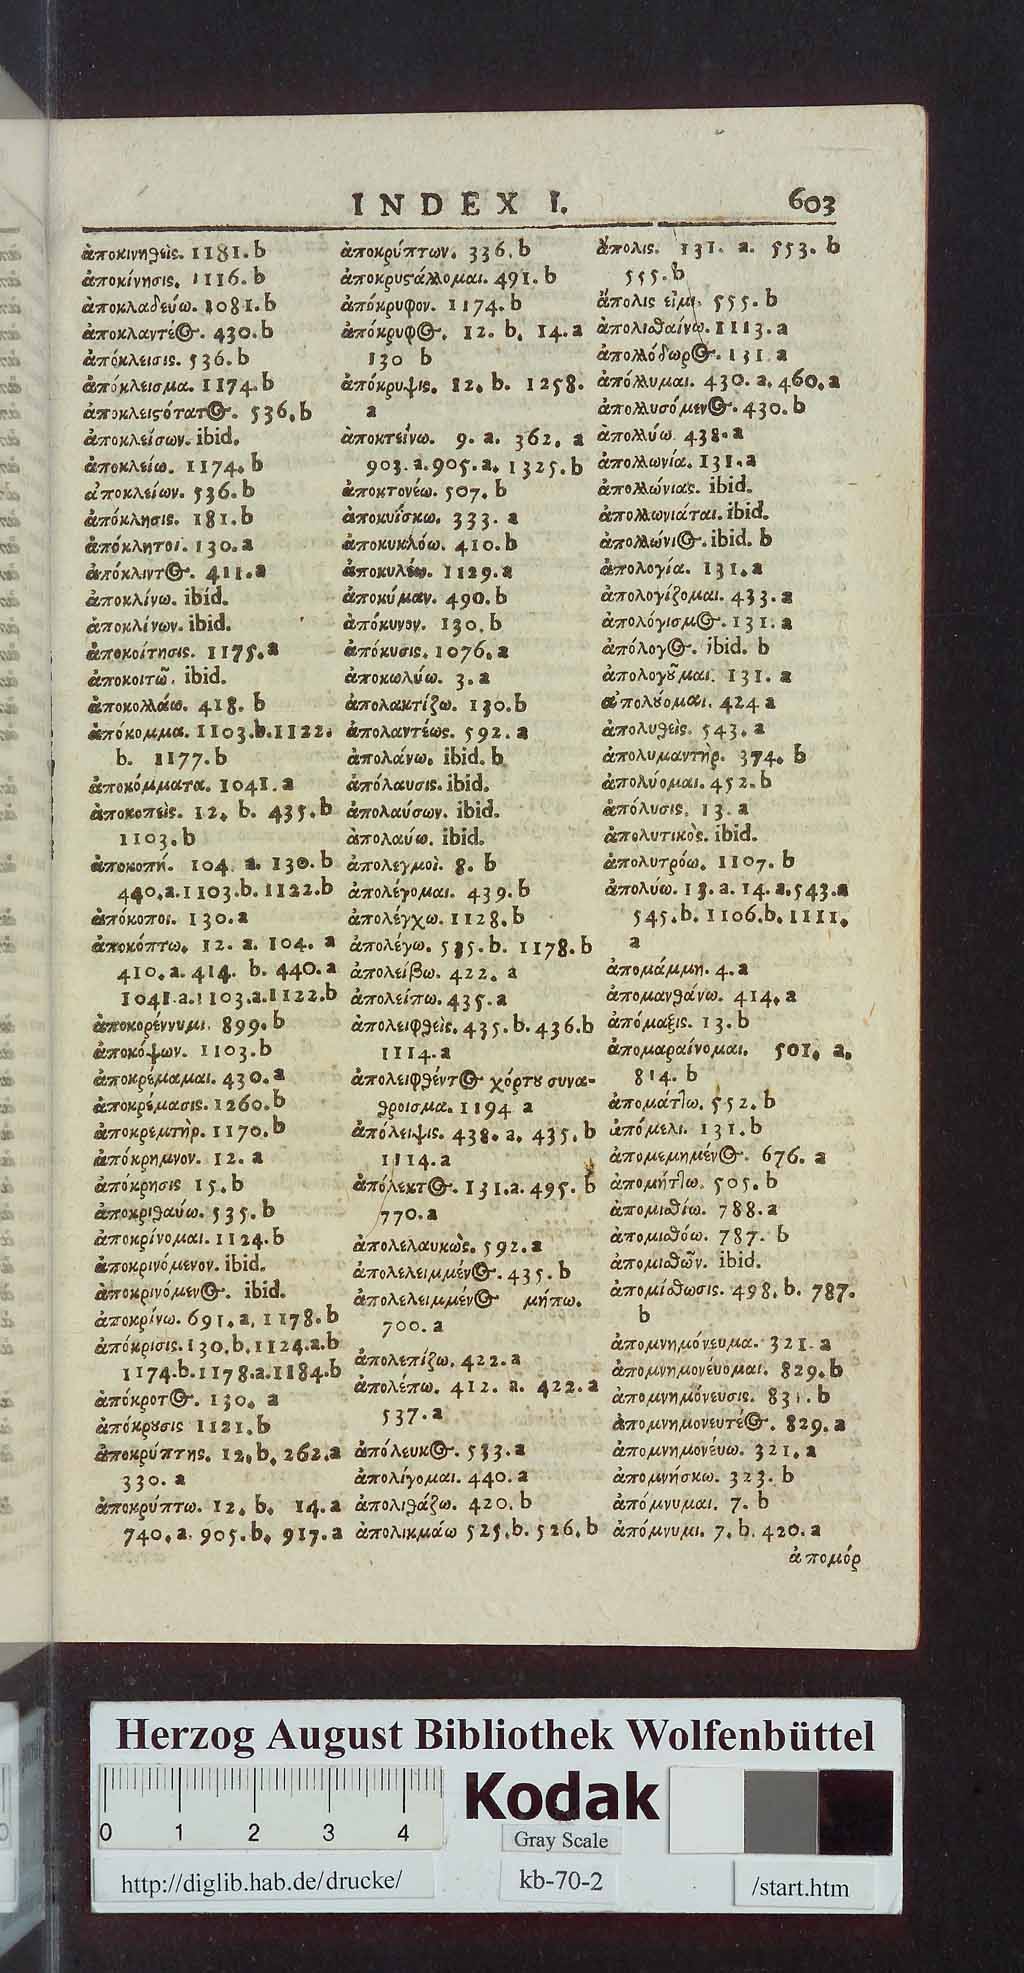 INDEX I. 603
ἀποκινηθεὶς. 1181. b
ἀποκίνησις. 1116. b
ἀποκλαδεύω. 1081. b
ἀποκλαυτέος. 430. b
ἀπόκλεισις. 536. b
ἀπόκλεισμα. 1174. b
ἀποκλειϛότατος. 536. b
ἀποκλείσων. ibid.
ἀποκλείω. 1174. b
ἀποκλείων. 536. b
ἀπόκλησις. 181. b
ἀπόκλητοι. 130. a
ἀπόκλιντος. 411. a
ἀποκλίνω. ibid.
ἀποκλίνων. ibid.
ἀποκοίτησις. 1175. a
ἀποκοιτῶ. ibid.
ἀποκολλάω. 418. b
ἀπόκομμα. 1103. b. 1122.
b. 1177. b
ἀποκόμματα. 1041. a
ἀποκοπεὶς. 12. b. 435. b
1103. b
ἀποκοπή. 104. a. 130. b
440. a. 1103. b. 1122. b
ἀπόκοποι. 130. a
ἀποκόπτω. 12. a. 104. a
410. a. 414. b. 440. a
1041. a. 1103. a. 1122. b
ἀποκορέννυμι. 899. b
ἀποκόψων. 1103. b
ἀποκρέμαμαι. 430. a
ἀποκρέμασις. 1260. b
ἀποκρεμτὴρ. 1170. b
ἀπόκρημνον. 12. a
ἀπόκρησις 15. b
ἀποκριθαύω. 535. b
ἀποκρίνομαι. 1124. b
ἀποκρινόμενον. ibid.
ἀποκρινόμενος. ibid.
ἀποκρίνω. 691. a. 1178. b
ἀπόκρισις. 130. b. 1124. a. b
1174. b. 1178. a. 1184. b
ἀπόκροτος. 130. a
ἀπόκρουσις 1121. b
ἀποκρύπτης. 12. b. 262. a
330. a
ἀποκρύπτω. 12. b. 14. a
740. a. 905. b. 917. a
ἀποκρύπτων. 336. b
ἀποκρυϛάλλομαι. 491. b
ἀπόκρυφον. 1174. b
ἀπόκρυφος. 12. b. 14. a
130 b
ἀπόκρυψις. 12. b. 1258.
a
ἀποκτείνω. 9. a. 362. a
903. a. 905. a. 1325. b
ἀποκτονέω. 507. b
ἀποκυΐσκω. 333. a
ἀποκυκλόω. 410. b
ἀποκυλέω. 1129. a
ἀποκύμαν. 490. b
ἀπόκυνον. 130. b
ἀπόκυσις. 1076. a
ἀποκωλύω. 3. a
ἀπολακτίζω. 130. b
ἀπολαυτέως. 592. a
ἀπολάυω. ibid. b
ἀπόλαυσις. ibid.
ἀπολαύσων. ibid.
ἀπολαύω. ibid.
ἀπολεγμοὶ. 8. b
ἀπολέγομαι. 439. b
ἀπολέγχω. 1128. b
ἀπολέγω. 535. b. 1178. b
ἀπολείβω. 422. a
ἀπολείπω. 435. a
ἀπολειφθεὶς. 435. b. 436. b
1114. a
ἀπολειφθέντος χόρτου συνα-
θροισμα. 1194 a
ἀπόλειψις. 438. a. 435. b
1114. a
ἀπόλεκτος. 131. a. 495. b
770. a
ἀπολελαυκὼς. 592. a
ἀπολελειμμένος. 435. b
ἀπολελειμμένος μήπω.
700. a
ἀπολεπίζω. 422. a
ἀπολέπω. 412. a. 422. a
537. a
ἀπόλευκος. 533. a
ἀπολίγομαι. 440. a
ἀπολιθάζω. 420. b
ἀπολικμάω 525. b. 526. b
ἄπολις. 131. a. 553. b
555. b
ἄπολις εἰμι. 555. b
ἀπολισθαίνω. 1113. a
ἀπολλόδωρος. 131. a
ἀπόλλυμαι. 430. a. 460. a
ἀπολλυσόμενος. 430. b
ἀπολλύω. 438. a
ἀπολλωνία. 131. a
ἀπολλώνιας. ibid.
ἀπολλωνιάται. ibid.
ἀπολλώνιος. ibid. b
ἀπολογία. 131. a
ἀπολογίζομαι. 433. a
ἀπολόγισμος. 131. a
ἀπόλογος. ibid. b
ἀπολογοῦμαι. 131. a
ἀπολούομαι. 424 a
ἀπολυθεὶς. 543. a
ἀπολυμαντὴρ. 374. b
ἀπολύομαι. 452. b
ἀπόλυσις. 13. a
ἀπολυτικὸς. ibid.
ἀπολυτρόω. 1107. b
ἀπολύω. 13. a. 14. a. 543. a
545. b. 1106. b. 1111.
a
ἀπομάμμη. 4. a
ἀπομανθάνω. 414. a
ἀπόμαξις. 13. b
ἀπομαραίνομαι. 501. a.
814. b
ἀπομάττω. 552. b
ἀπόμελι. 131. b
ἀπομεμημένος. 676. a
ἀπομήττω. 505. b
ἀπομισθίω. 788. a
ἀπομισθόω. 787. b
ἀπομισθῶν. ibid.
ἀπομίσθωσις. 498. b. 787.
b
ἀπομνημόνευμα. 321. a
ἀπομνημονέυομαι. 829. b
ἀπομνημόνευσις. 831. b
ἀπομνημονευτέος. 829. a
ἀπομνημονέυω. 321. a
ἀπομνήσκω. 323. b
ἀπόμνυμαι. 7. b
ἀπόμνυμι. 7. b. 420. a
ἀπομόρ
Herzog August Bibliothek Wolfenbüttel
0 1 2 3 4
Kodak
Gray Scale
http://diglib.hab.de/drucke/ kb-70-2 /start.htm